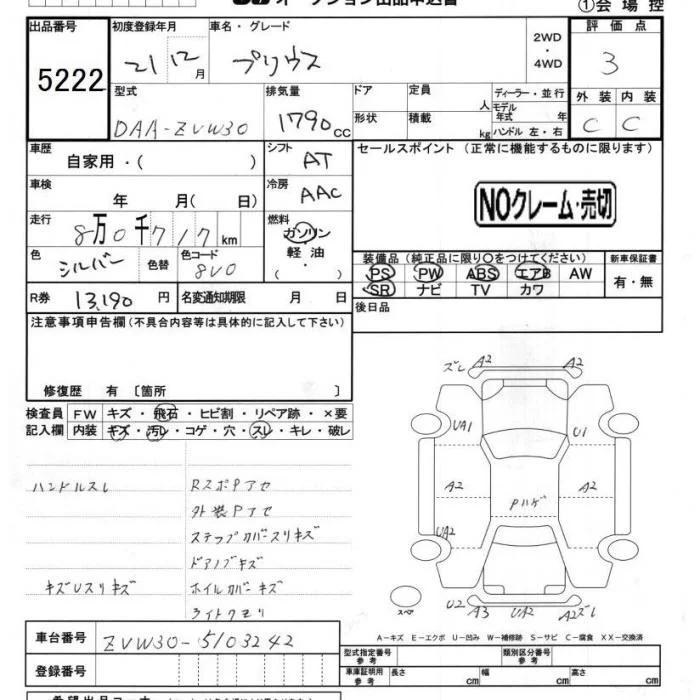 オークション出品申込書 ①会場控
出品番号 初度登録年月 車名・グレード 評価点
5222 21 12月 プリウス 2WD・4WD 3
型式 排気量 ドア 定員 人 ディーラー・並行 外装 内装
DAA-ZVW30 1790cc 形状 積載 kg モデル年式 年 ハンドル 左・右 C C
車歴 自家用・( ) シフト AT セールスポイント (正常に機能するものに限ります)
車検 年 月( 日) 冷房 AAC NOクレーム・売切
走行 8万0千717km 燃料 ガソリン 軽油・( ・ )
色 シルバー 色替 色コード 8V0 装備品 (純正品に限り○をつけてください) 新車保証書
PS PW ABS エアB AW 有・無
SR ナビ TV カワ
R券 13,190円 名変通知期限 月 日 後日品
注意事項申告欄 (不具合内容等は具体的に記入して下さい)
修復歴 有 〔箇所 〕
検査員 FW キズ・飛石・ヒビ割・リペア跡・×要
記入欄 内装 キズ・汚レ・コゲ・穴・スレ・キレ・破レ
ズレ A2 A2
UA1 U1
A2 A2
Pハゲ
UA2
スペア U2 A3 UA2 A2ズレ
ハンドルスレ RスポPアセ
外装Pアセ
ステップカバースリキズ
ドアノブキズ
キズUスリキズ ホイルカバーキズ
ライトクモリ
A-キズ E-エクボ U-凹み W-補修跡 S-サビ C-腐食 XX-交換済
車台番号 ZVW30-5103242
型式指定番号 参考 類別区分番号 参考
登録番号 車庫証明用 参考 長さ cm 幅 cm 高さ cm